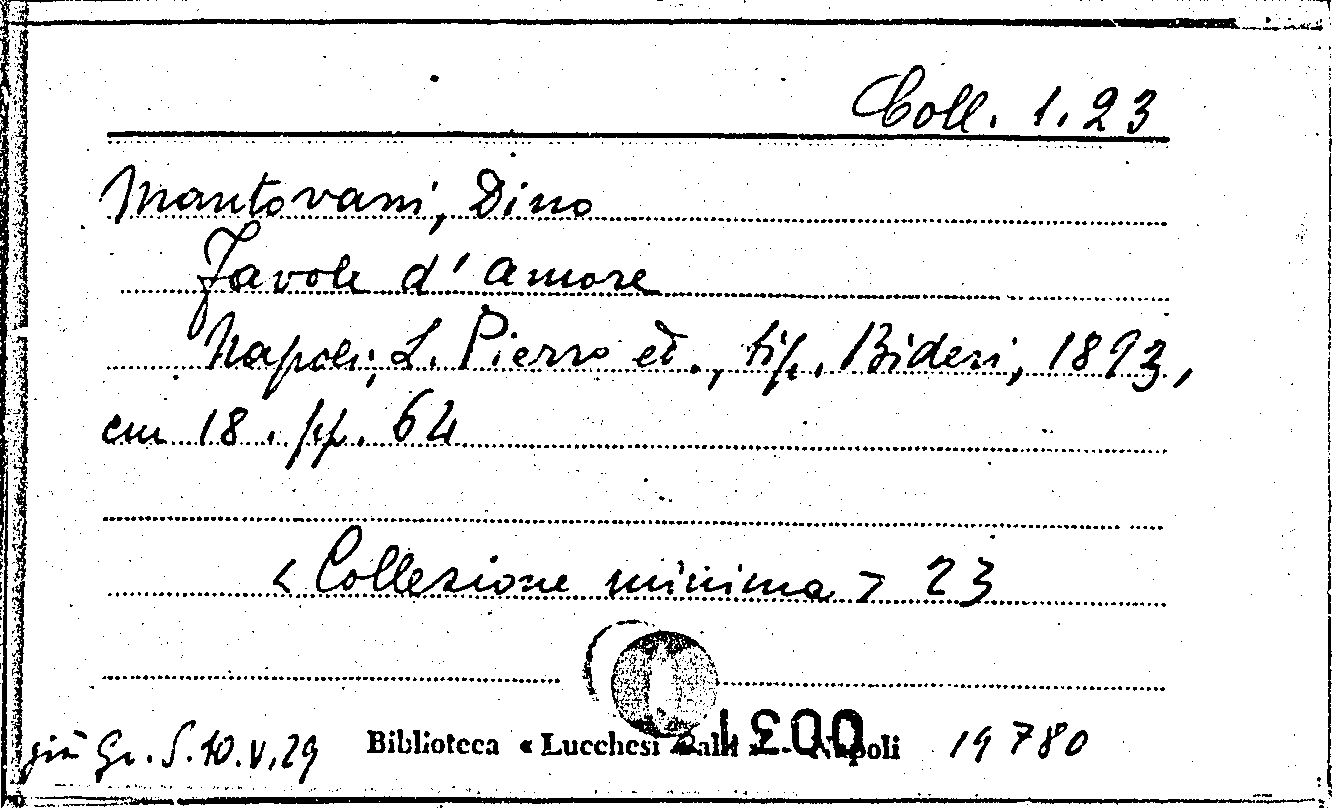 Coll. 1.23
Mantovani, Dino
Favole d'amore
Napoli, L. Pierro ed., tip. Bideri, 1893,
cm 18. pp. 64
< Collezione minima > 23
già Gr. S. 10. V. 29 Biblioteca « Lucchesi Palli » - Napoli 19780